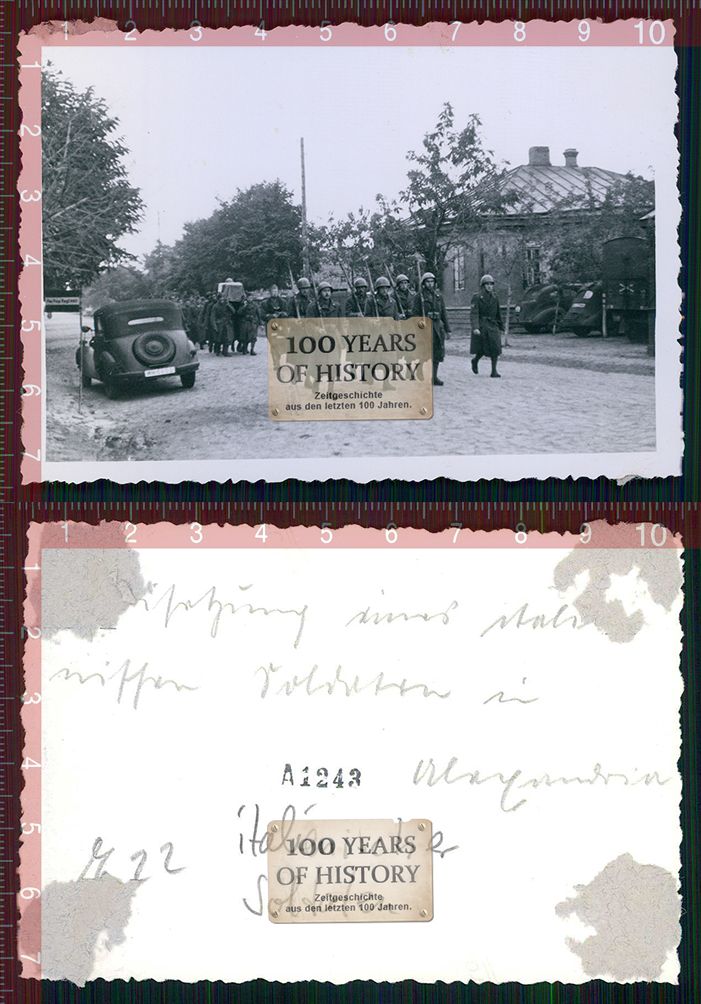 1 2 3 4 5 6 7 8 9 10
2
3
4
5
6
7
100 YEARS
OF HISTORY
Zeitgeschichte
aus den letzten 100 Jahren.
1 2 3 4 5 6 7 8 9 10
2
3
4
5
6
7
eines itali
nischen Soldaten in
A1243 Alexandria
100 YEARS
OF HISTORY
Zeitgeschichte
aus den letzten 100 Jahren.
22